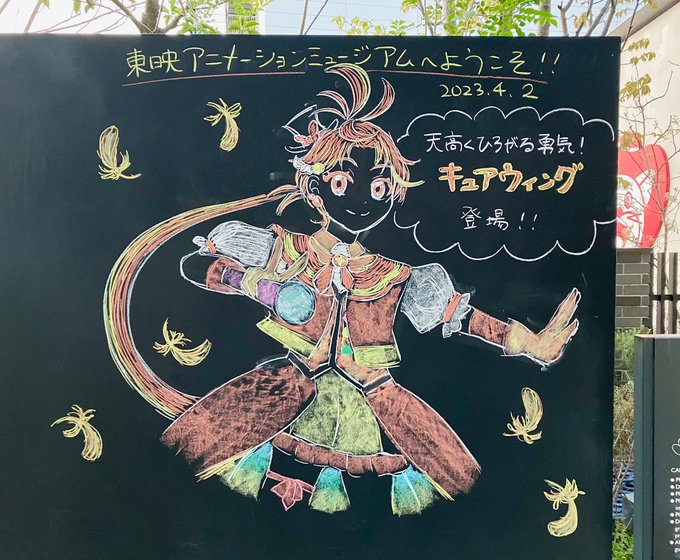 東映アニメーションミュージアムへようこそ!!
2023.4.2
天高くひろがる勇気!
キュアウィング
登場!!